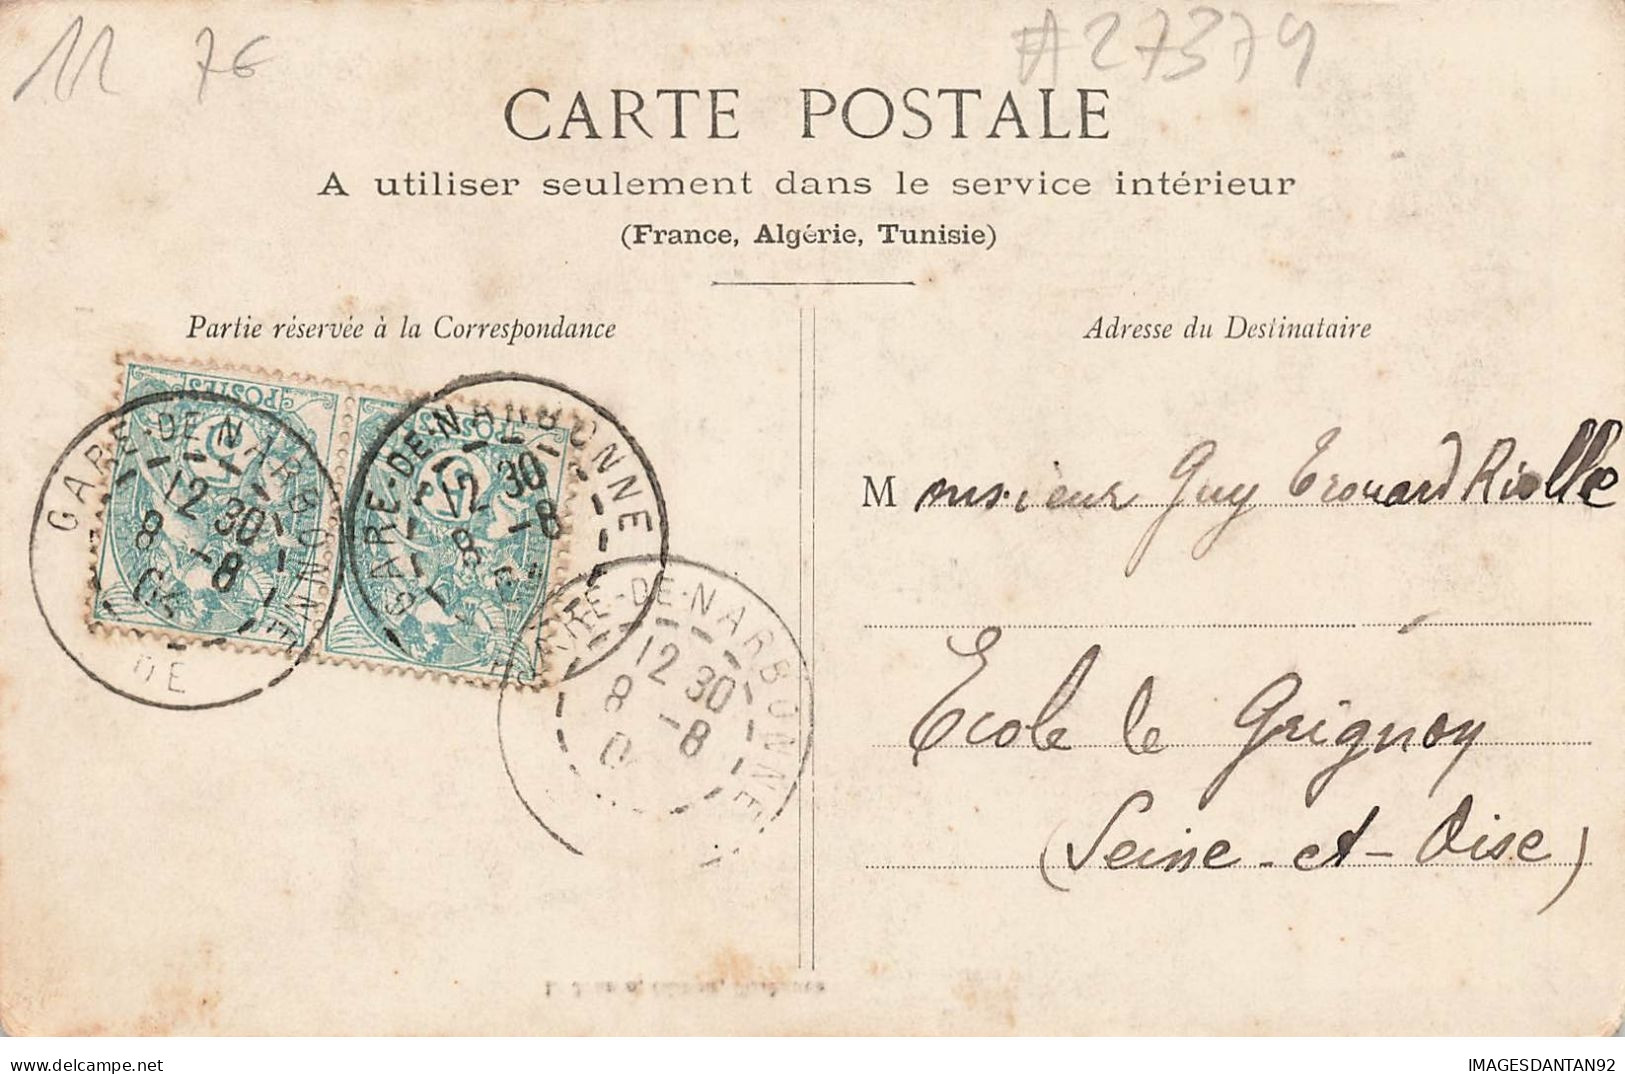 11 7€
#27379
CARTE POSTALE
A utiliser seulement dans le service intérieur
(France, Algérie, Tunisie)
Partie réservée à la Correspondance
Adresse du Destinataire
POSTES
POSTES
GARE-DE-NARBONNE
12 30
8 -8
05
DE
GARE-DE-NARBONNE
12 30
8 -8
GARE-DE-NARBONNE
12 30
8 -8
0
M monsieur Guy
Ecole de Grignon
(Seine-et-Oise)
IMAGESDANTAN92